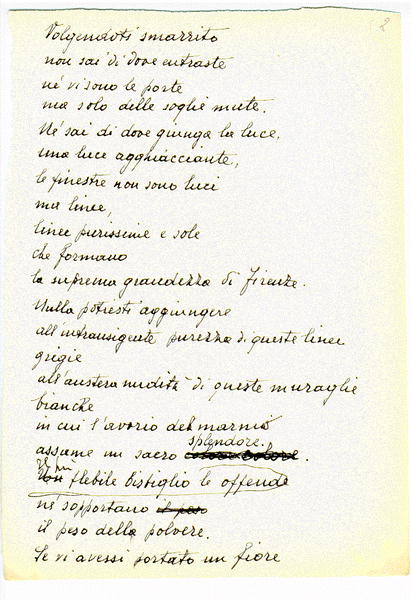 2
Volgendoti smarrito
non sai di dove entraste
né vi sono le porte
ma solo delle soglie mute.
Né sai di dove giunga la luce,
una luce agghiacciante,
le finestre non sono luci
ma linee,
linee purissime e sole
che formano
la suprema grandezza di Firenze.
Nulla potresti aggiungere
all'intransigente purezza di queste linee
grigie
all'austera nudità di queste muraglie
bianche
in cui l'avorio del marmo
splendore.
assume un sacro
un flebile bisbiglio le offende
né sopportano il peso
il peso della polvere.
Se vi avessi portato un fiore